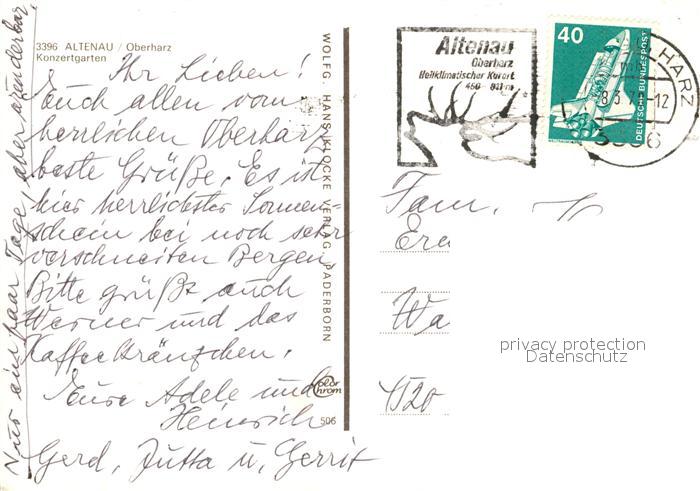 3396 ALTENAU / Oberharz
Konzertgarten
Ihr Lieben!
Euch allen vom
herrlichen Oberharz
beste Grüße. Es ist
hier herrlichster Sonnen-
schein bei noch sehr
verschneiten Bergen.
Bitte grüßt auch
Werner und das
Kaffeekränzchen.
Eure Adele und
Heinrich
Gerd, Jutta u. Gerrit
Nur ein paar Tage, aber wunderbar.
WOLFG. HANS KLOCKE VERLAG PADERBORN
Color
Chrom
506
Altenau
Oberharz
Heilklimatischer Kurort
450-
40
DEUTSCHE BUNDESPOST
HARZ
-12
3396
Fam.
Wa
privacy protection
Datenschutz